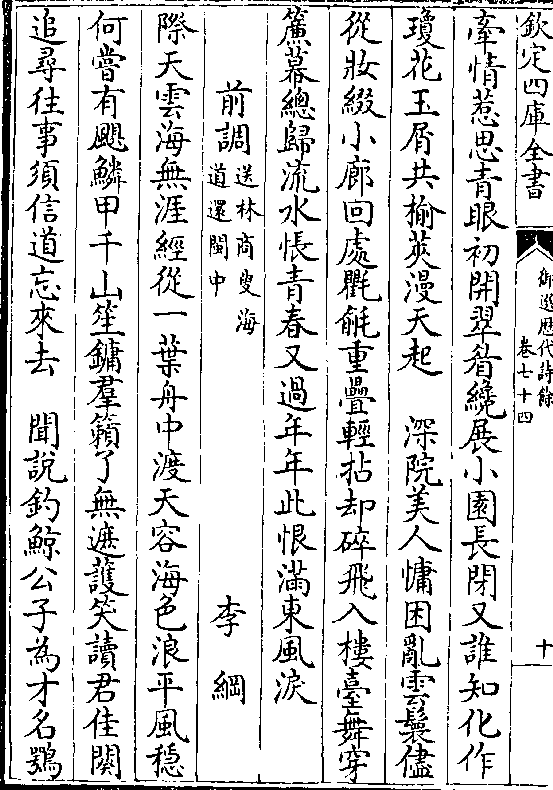 欽定四庫全書
御選歷代詩餘
卷七十四
十
牽情惹思青眼初開翠眉纔展小園長閉又誰知化作
瓊花玉屑共榆莢漫天起　深院美人慵困亂雲鬟儘
從妝綴小廊回處氍毹重疊輕拈却碎飛入樓臺舞穿
簾幕總歸流水悵青春又過年年此恨滿東風淚
前調送林商叟海道還閩中　李綱
際天雲海無涯經從一葉舟中渡天容海色浪平風穩
何嘗有颶鱗甲千山笙鏞羣籟了無遮護笑讀君佳闋
追尋往事須信道忘來去　聞說釣鯨公子為才名鶚